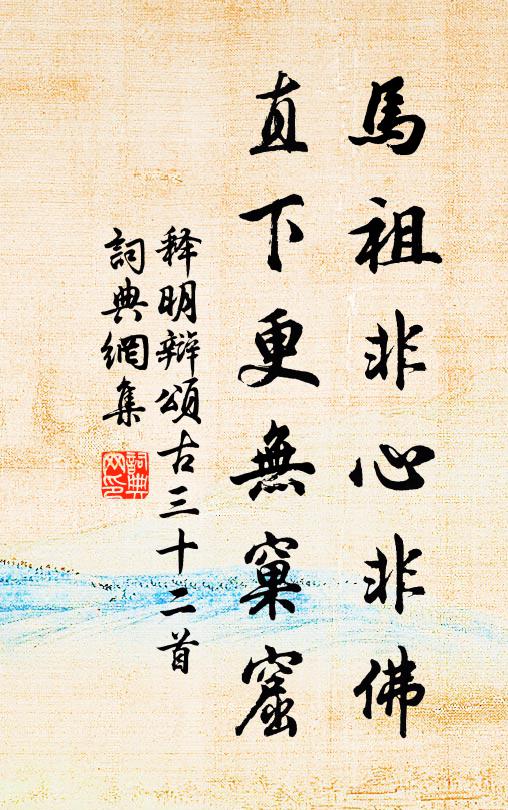 馬祖非心非佛
直下更無窠窟
释明辯頌古三十二首
詞典網集
詞典网印